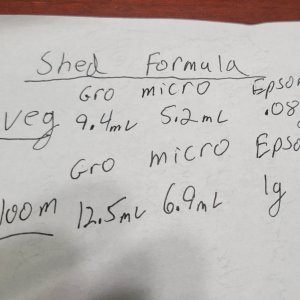 Shed Formula
Gro micro Epsom
veg 9.4mL 5.2mL .08g
Gro micro Epso
100m 12.5mL 6.9mL 1g